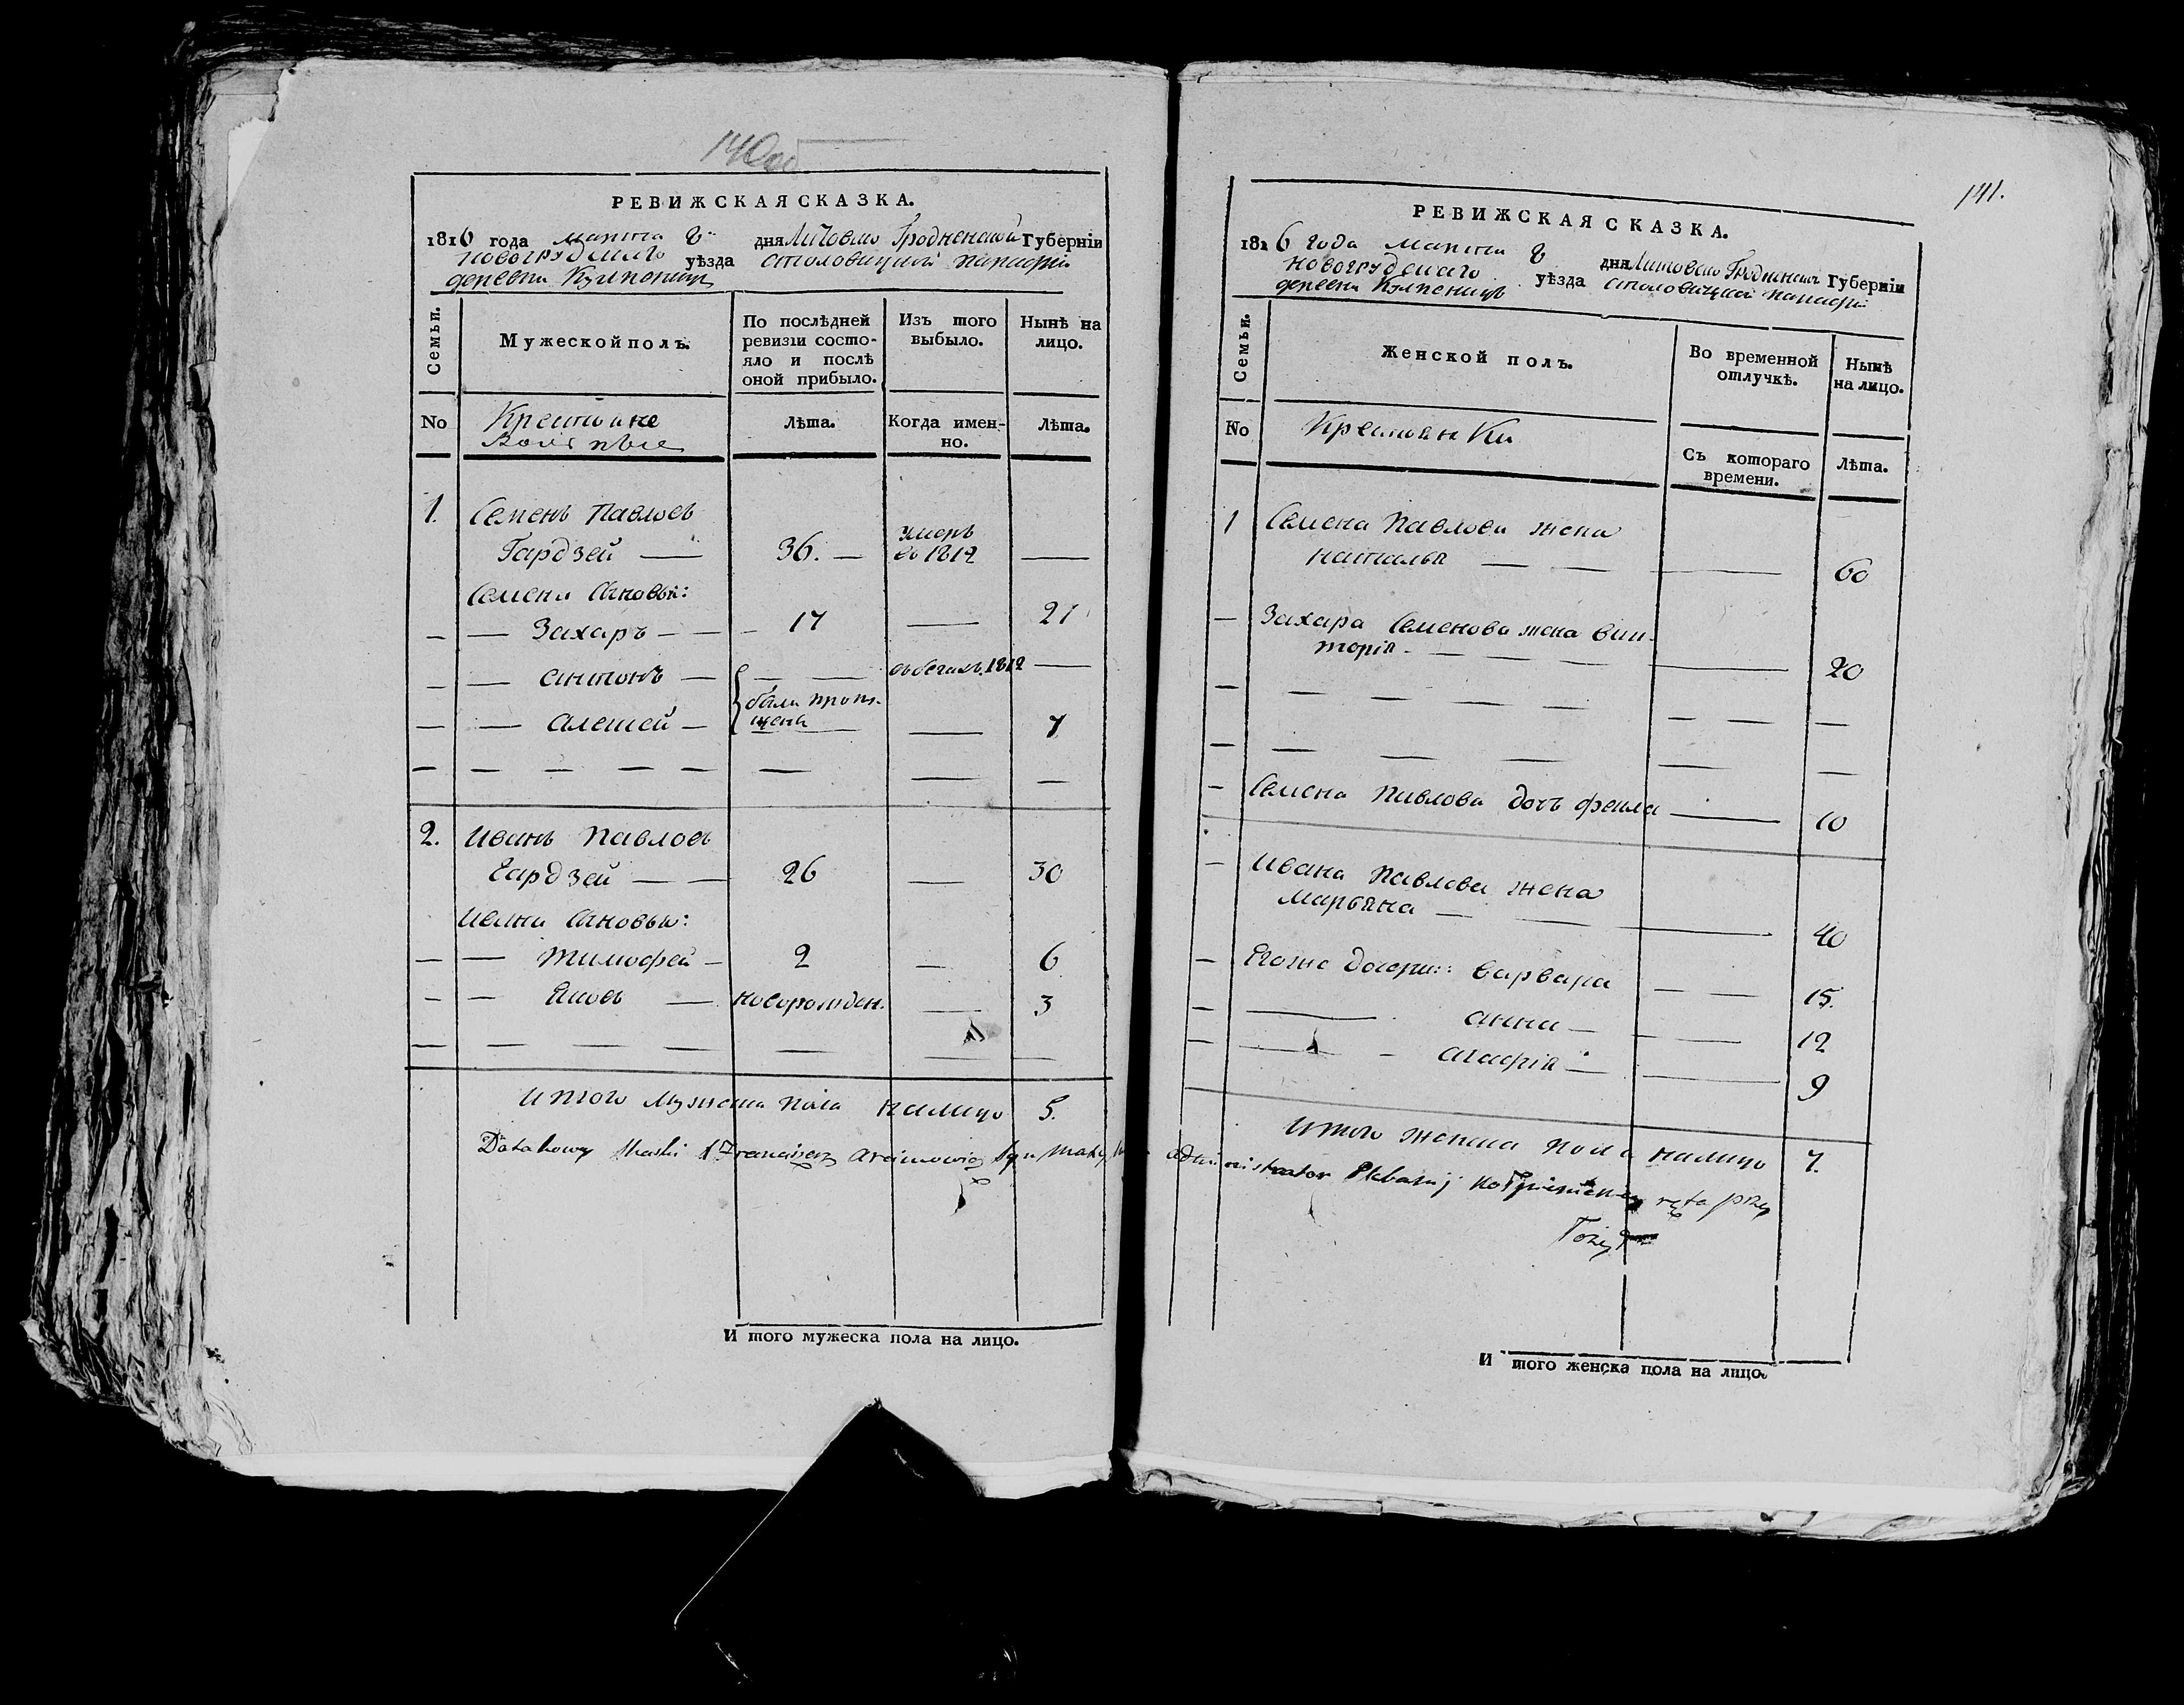 140об
РЕВИЖСКАЯ СКАЗКА.
1816 года марта 8 дня Литовско Гродненской Губерніи
новогрудскаго уѣзда столовицкой парафіи
деревни Кулпениц
Семьи.
Мужеской полъ.
По послѣдней ревизіи состояло и послѣ оной прибыло.
Изъ того выбыло.
Нынѣ на лицо.
No
Крестьяне
Вольные
Лѣта.
Когда именно.
Лѣта.
1. Семенъ Павловъ
Гардзей — 36. — умеръ въ 1812 —
Семена Сыновья:
— — Захаръ — — 17 — 21
— — антонъ — въ бегахъ. 1812 —
— — алексей — были пропущены — 7
2. Иванъ Павловъ
Гардзей — — 26 — 30
Ивана Сыновья:
— — тимофей — 2 — 6
— — Яковъ — новорожден. — 3
Итого мужеска пола налицо 5.
141.
РЕВИЖСКАЯ СКАЗКА.
1816 года марта 8 дня Литовско Гродненской Губерніи
новогрудскаго уѣзда столовицкой парафіи
деревни Кулпеницъ
Семьи.
Женской полъ.
Во временной отлучкѣ.
Нынѣ на лицо.
No
Крестьянки
Съ котораго времени.
Лѣта.
1 Семена Павлова жена
наталья — — — 60
— Захара Семенова жена вик-
торія — — — — 20
— Семена Павлова дочь фекла — 10
— Ивана Павлова жена
Марьяна — — — 40
— Егожъ дочери: варвара — — 15.
— — анна — — 12
— — агафія — — 9
Итого женска пола налицо 7.
administrator Plebanij
ręką przy
И того мужеска пола на лицо.
И того женска пола на лицо.